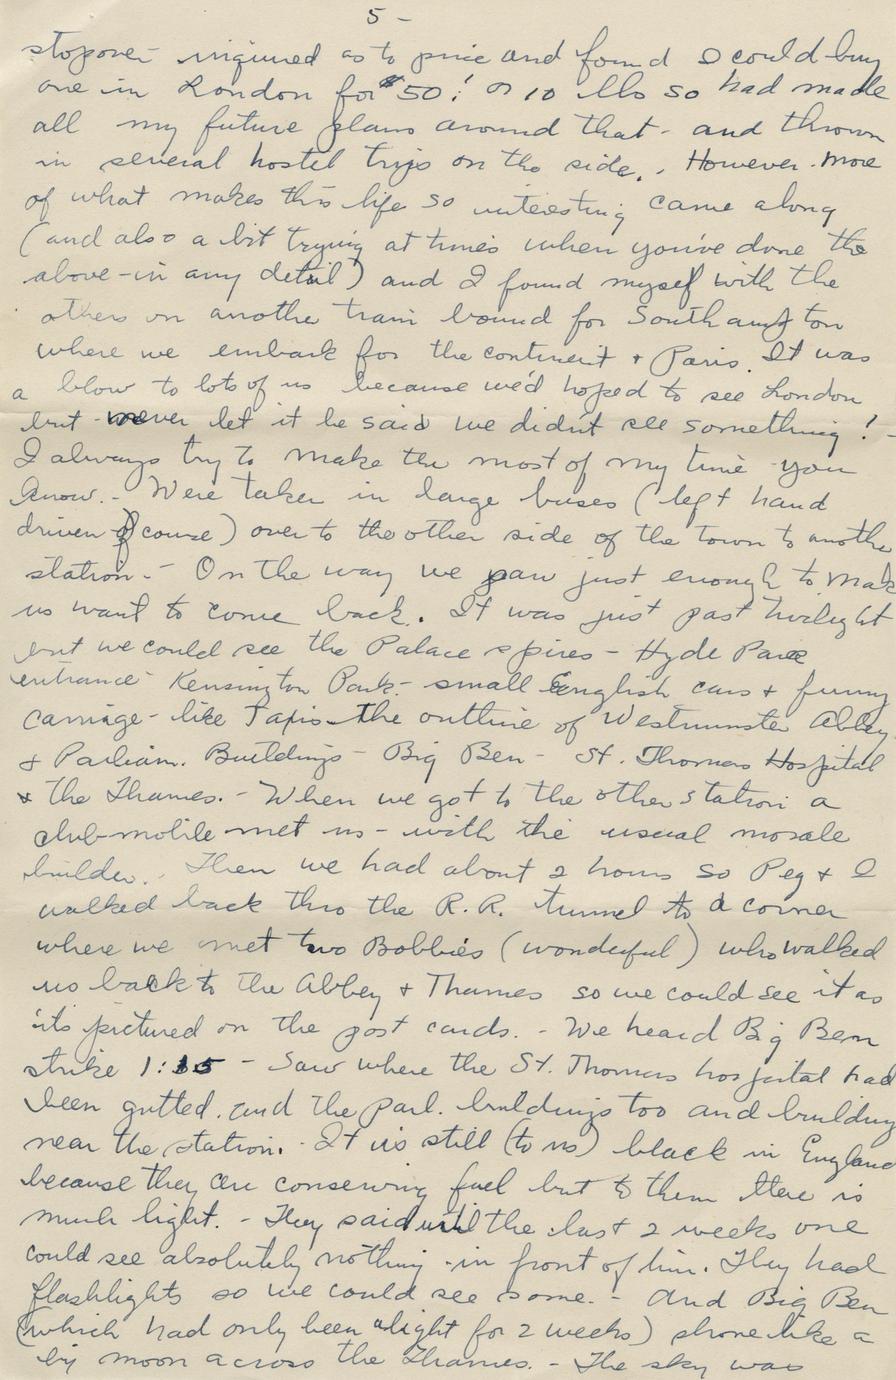 5 -
stopover inquired as to price and found I could buy
one in London for $50! or 10 lbs so had made
all my future plans around that - and thrown
in several hostel trips on the side. . However. more
of what makes this life so interesting came along
(and also a bit trying at times when you've done the
above - in any detail) and I found myself with the
others on another train bound for Southampton
where we embark for the continent + Paris. It was
a blow to lots of us because we'd hoped to see London
but - never let it be said we didn't see something! -
I always try to make the most of my time you
know. - Were taken in large buses (left hand
driven of course) over to the other side of the town to another
station. - On the way we saw just enough to make
us want to come back. It was just past twilight
but we could see the Palace spires - Hyde Park
entrance - Kensington Park - small English cars + funny
carriage - like Taxis - the outline of Westminster Abbey
+ Parliam. Buildings - Big Ben - St. Thomas Hospital
+ the Thames. - When we got to the other station a
club-mobile met us - with the usual morale
builder. Then we had about 2 hours so Peg + I
walked back thro the R.R. tunnel to a corner
where we met two Bobbies (wonderful) who walked
us back to the Abbey + Thames so we could see it as
its pictured on the post cards. - We heard Big Ben
strike 1:15 - Saw where the St. Thomas hospital had
been gutted. and the Parl. buildings too and building
near the station. - It is still (to us) black in England
because they are conserving fuel but to them there is
much light. - They said until the last 2 weeks one
could see absolutely nothing - in front of him. They had
flashlights so we could see some. - And Big Ben
(which had only been alight for 2 weeks) shone like a
big moon across the Thames. - The sky was